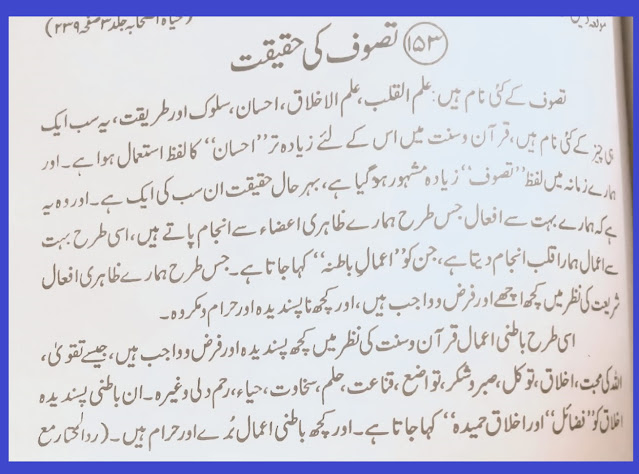 (حیاۃ الصحابہ جلد ۳ صفحہ ۲۳۹)
۱۵۳ تصوف کی حقیقت
تصوف کے کئی نام ہیں: علم القلب، علم الاخلاق، احسان، سلوک اور طریقت، یہ سب ایک
ہی چیز کے کئی نام ہیں، قرآن وسنت میں اس کے لئے زیادہ تر "احسان" کا لفظ استعمال ہوا ہے۔ اور
ہمارے زمانہ میں لفظ "تصوف" زیادہ مشہور ہو گیا ہے، بہر حال حقیقت ان سب کی ایک ہے۔ اور وہ یہ
ہے کہ ہمارے بہت سے افعال جس طرح ہمارے ظاہری اعضاء سے انجام پاتے ہیں، اسی طرح بہت
سے اعمال ہمارا قلب انجام دیتا ہے، جن کو "اعمالِ باطنہ" کہا جاتا ہے۔ جس طرح ہمارے ظاہری افعال
شریعت کی نظر میں کچھ اچھے اور فرض وواجب ہیں، اور کچھ ناپسندیدہ اور حرام ومکروہ۔
اسی طرح باطنی اعمال قرآن وسنت کی نظر میں کچھ پسندیدہ اور فرض وواجب ہیں، جیسے تقویٰ،
اللہ کی محبت، اخلاق، توکل، صبر وشکر، تواضع، قناعت، حلم، سخاوت، حیاء، رحم دلی وغیرہ۔ ان باطنی پسندیدہ
اخلاق کو "فضائل" اور اخلاق حمیدہ" کہا جاتا ہے۔ اور کچھ باطنی اعمال بُرے اور حرام ہیں۔ (رد المحتار مع